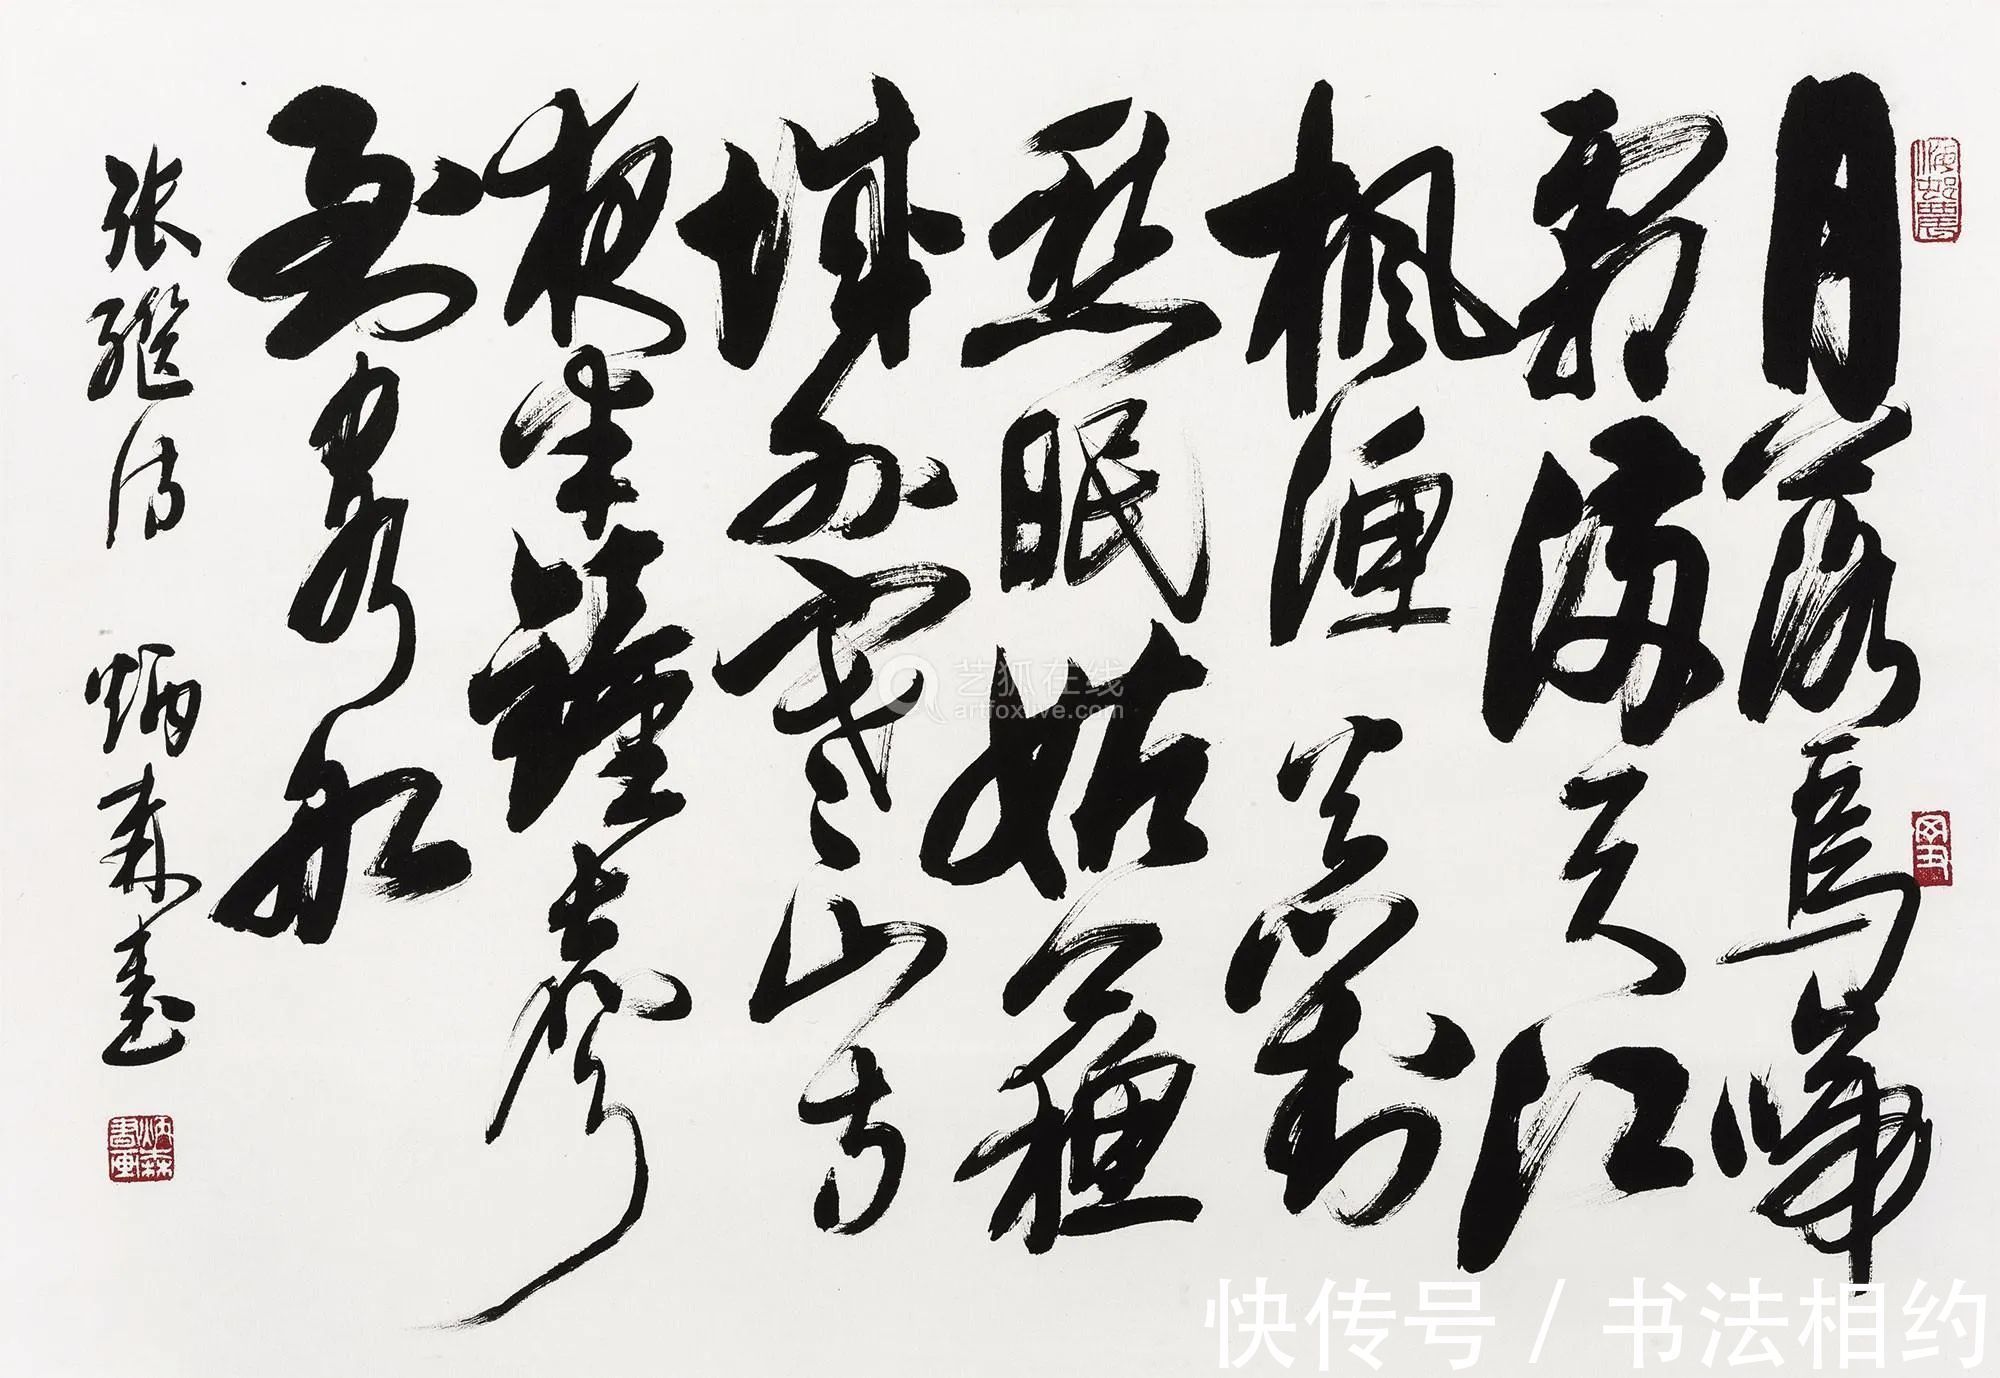 月落烏啼
霜滿天江
楓漁火對
愁眠姑蘇
城外寒山寺
夜半鐘聲
到客船
張繼詩 炳森書
炳森書画
艺狐在线
artfoxlive.com
快传号 / 书法相约